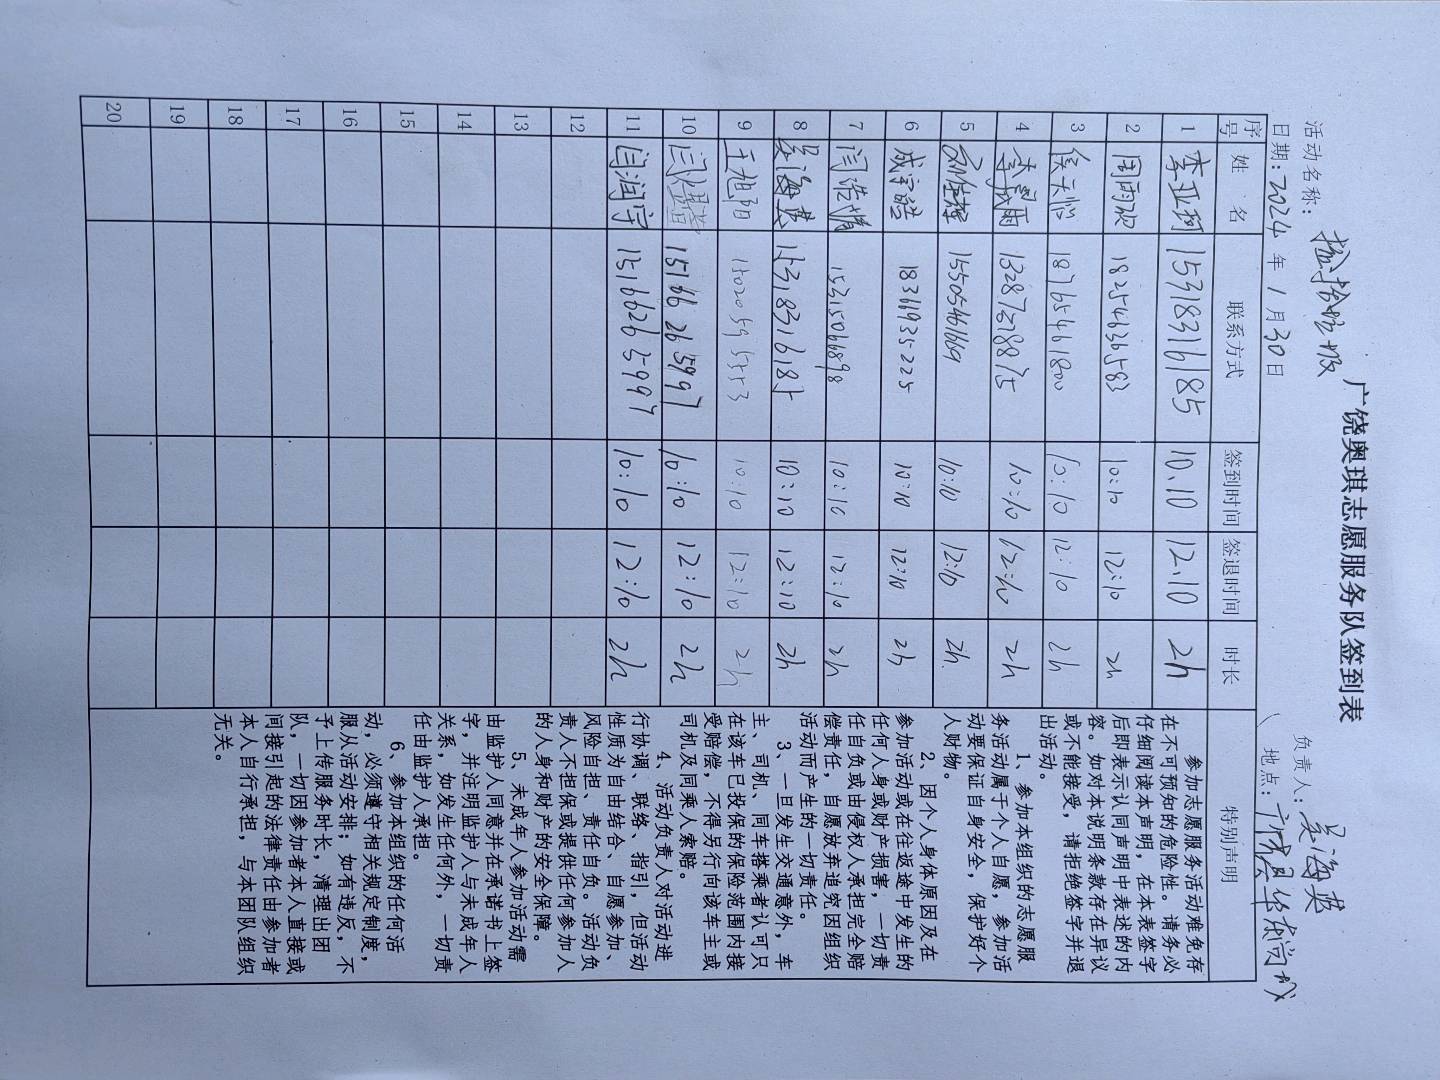 广饶奥琪志愿服务队签到表
活动名称： 负责人：吴海英
日期：2024 年 1 月 30 日 地点：
序号 姓 名 联系方式 签到时间 签退时间 时长 特别声明
1 李亚珂 15318316185 10:10 12:10 2h
2 周雨欣 18254636583 10:10 12:10 2h
3 侯天怡 18765461800 10:10 12:10 2h
4 13287318875 10:10 12:10 2h
5 15505461669 10:10 12:10 2h
6 成宇皓 18361935225 10:10 12:10 2h
7 闫浩情 15315066898 10:10 12:10 2h
8 吴海英 15318316185 10:10 12:10 2h
9 王旭阳 15020595553 10:10 12:10 2h
10 15166265997 10:10 12:10 2h
11 闫润宇 15166265997 10:10 12:10 2h
12
13
14
15
16
17
18
19
20
参加志愿服务活动难免存
在不可预知的危险性。请务必
仔细阅读本声明，在本表签字
后即表示认同声明中表述的内
容。如对本说明条款存在异议
或不能接受，请拒绝签字并退
出活动。
1、参加本组织的志愿服
务活动属于个人自愿，参加活
动要保证自身安全，保护好个
人财物。
2、因个人身体原因及在
参加活动或在往返途中发生的
任何人身或财产损害，一切责
任自负或由侵权人承担完全赔
偿责任，自愿放弃追究因组织
活动而产生的一切责任。
3、一旦发生交通意外，车
主、司机、同车搭乘者认可只
在该车已投保的保险范围内接
受赔偿，不得另行向该车主或
司机及同乘人索赔。
4、活动负责人对活动进
行协调、联络、指引，但活动
性质为自由结合、自愿参加、
风险自担、责任自负。活动负
责人不担保或提供任何参加人
的人身和财产的安全保障。
5、未成年人参加活动需
由监护人同意并在承诺书上签
字，并注明监护人与未成年人
关系，如发生任何外，一切责
任由监护人承担。
6、参加本组织的任何活
动，必须遵守相关规定制度，
服从活动安排；如有违反，不
予上传服务时长，清理出团
队，一切因参加者本人直接或
间接引起的法律责任由参加者
本人自行承担，与本团队组织
无关。